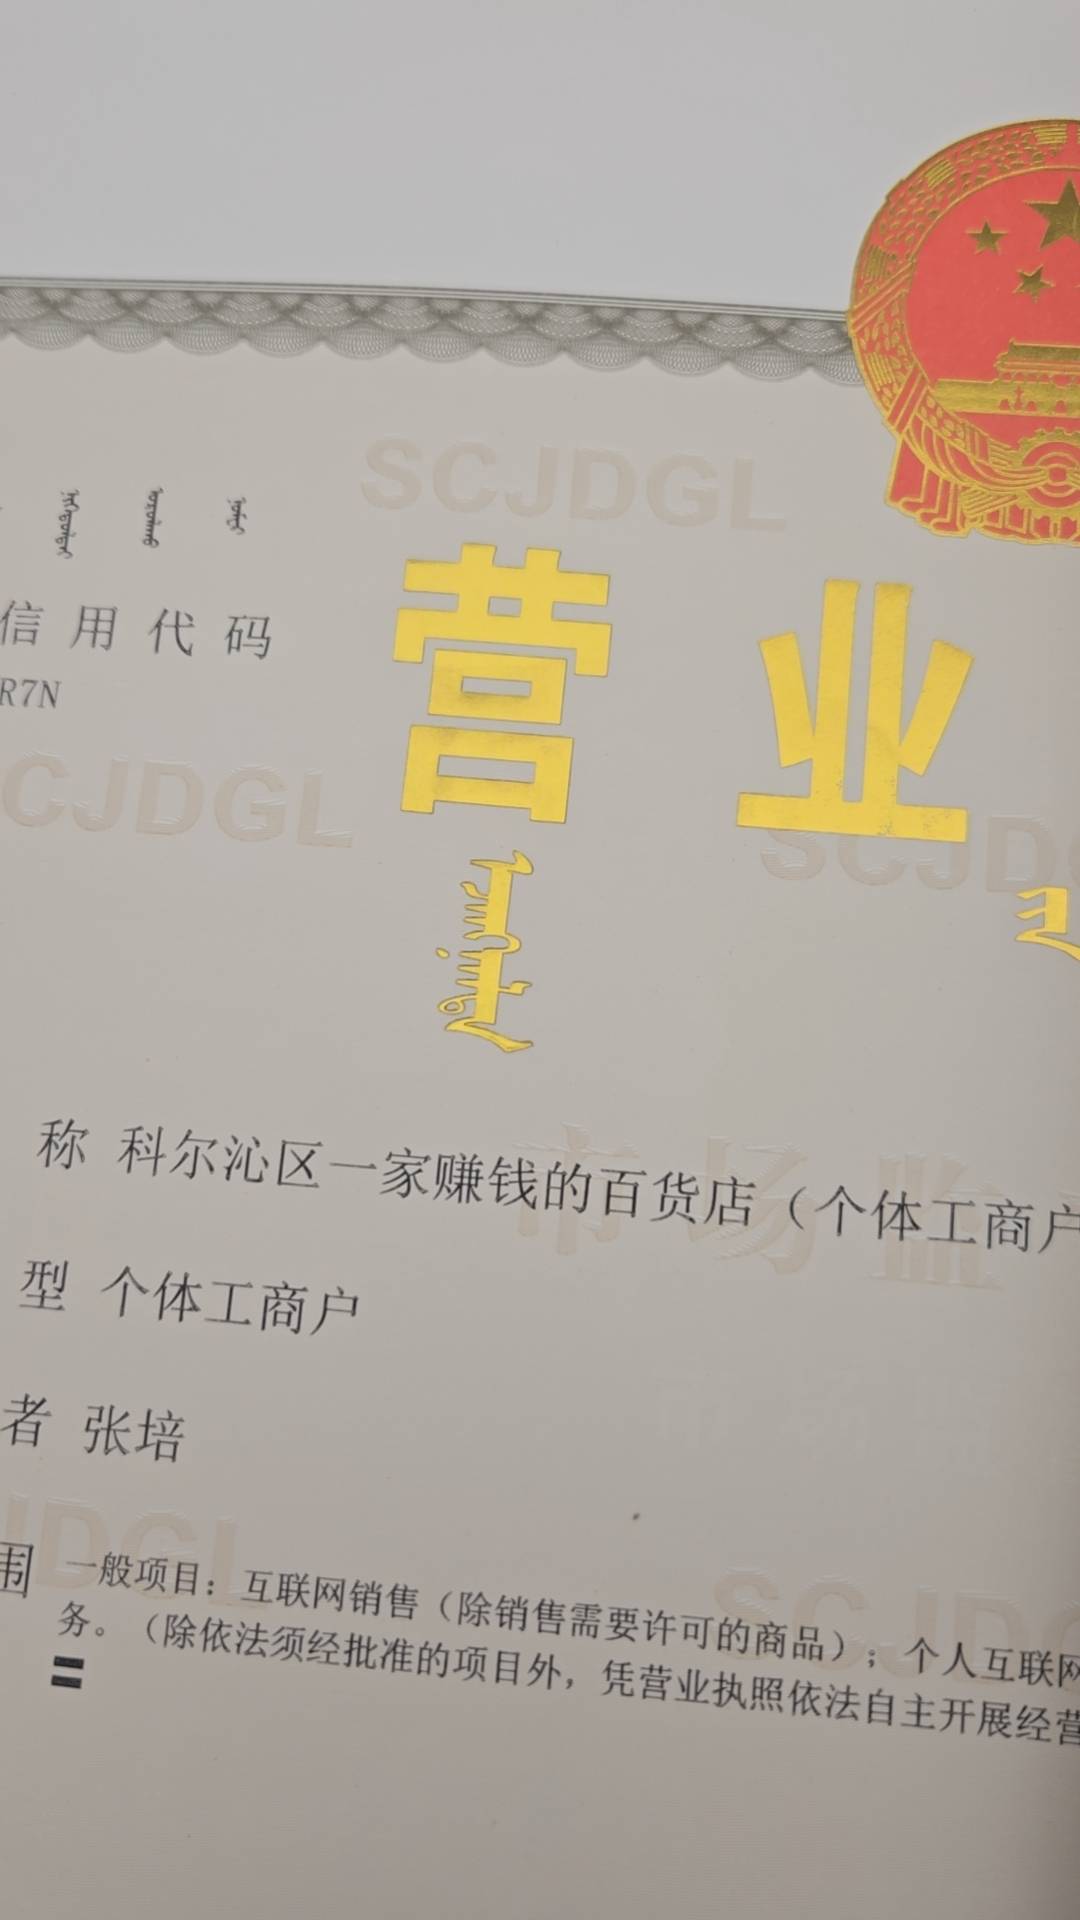 SCJDGL
信用代码
R7N
营业
CJDGL
SCJD
市场监
称 科尔沁区一家赚钱的百货店（个体工商户
型 个体工商户
者 张培
JDGL
SCJD
围 一般项目：互联网销售（除销售需要许可的商品）；个人互联网
务。（除依法须经批准的项目外，凭营业执照依法自主开展经营